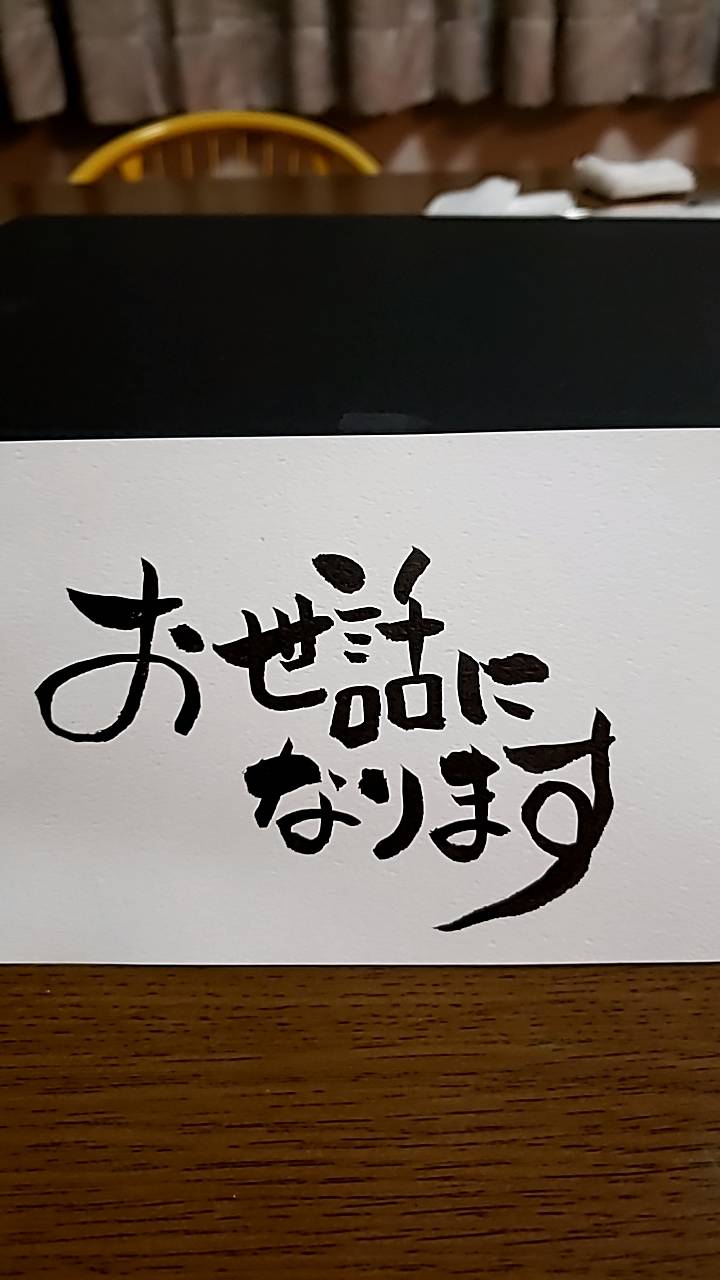 お世話に
なります